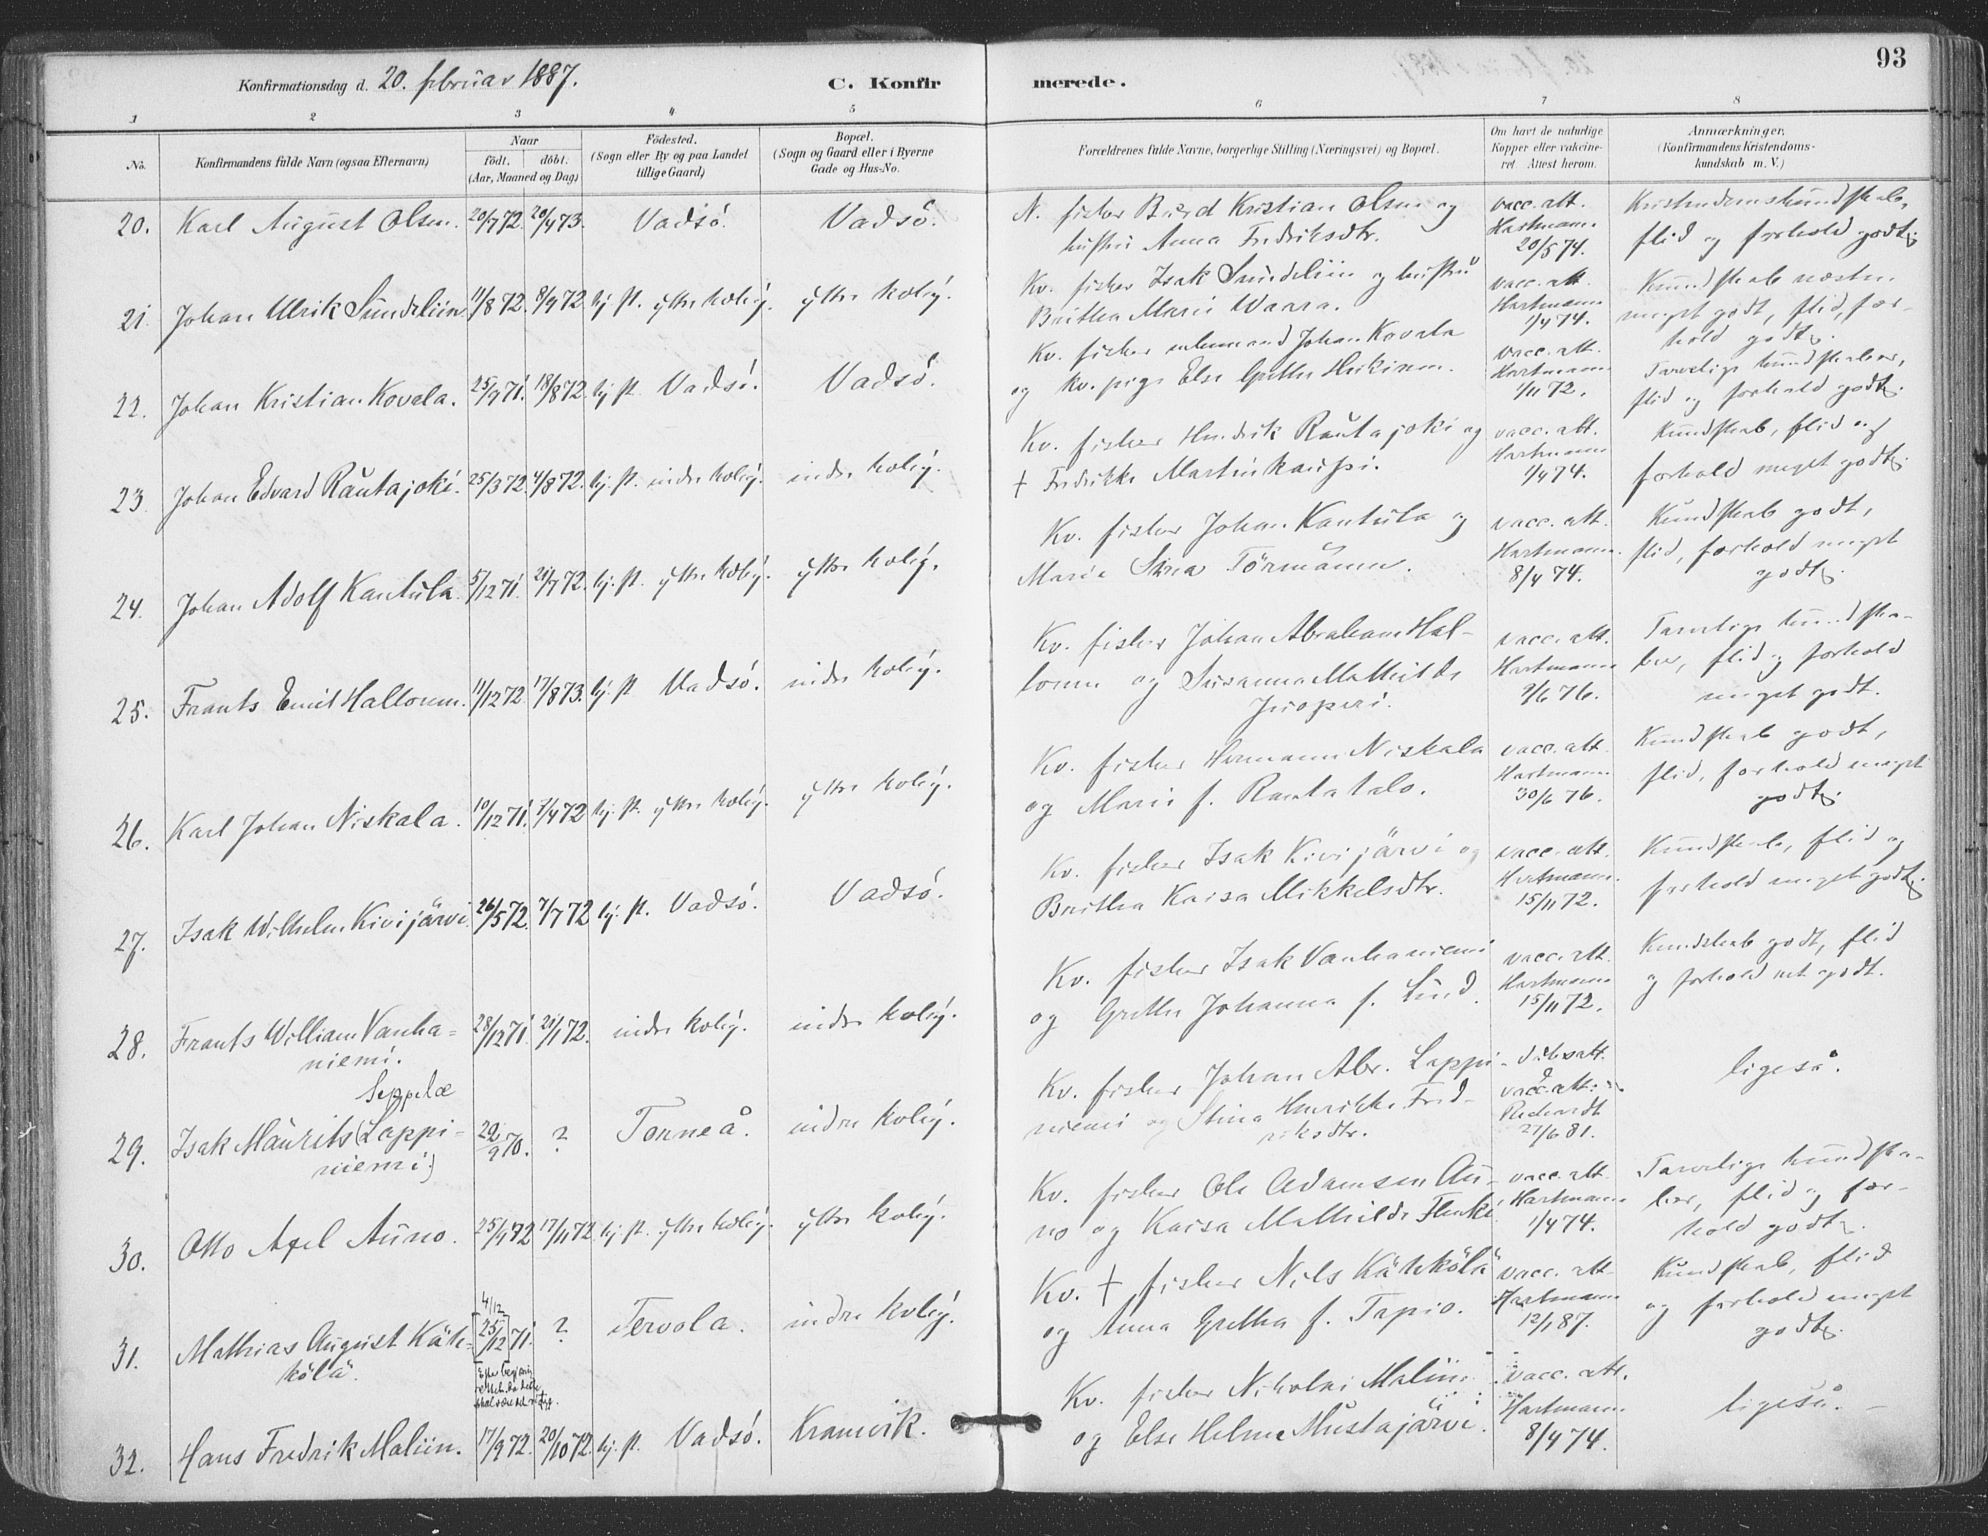 Konfirmationsdag d. 20. februar 1887.
C. Konfirmerede.
93
1 2 3 4 5 6 7 8
No. Konfirmandens fulde Navn (ogsaa Efternavn) Naar født. døbt. (Aar, Maaned og Dag) Födested. (Sogn eller By og paa Landet tillige Gaard) Bopæl. (Sogn og Gaard eller i Byerne Gade og Hus-No. Forældrenes fulde Navne, borgerlige Stilling (Næringsvei) og Bopæl. Om havt de naturlige Kopper eller vakcineret Attest herom. Anmærkninger. (Konfirmandens Kristendomskundskab m. V.)
20. Karl August Olsen. 20/7 72. 20/4 73. Vadsö. Vadsö.
N. fisker Bierd Kristian Olsen og
hustru Anna Fredriksdtr.
vacc. att.
Hartmann.
20/5 74.
Kristendomskundskab,
flid og forhold godt.
21. Johan Ulrik Sundeliin 11/8 72. 8/9 72. hj. st. ytre kolvig. ytre kolvig.
Kv. fisker Isak Sundeliin og hustru
Britha Marie Waara.
vacc. att.
Hartmann
1/4 74.
Kundskab næsten
meget godt, flid, for-
hold godt.
22. Johan Kristian Kovala. 25/9 71. 18/8 72. hj. st. Vadsö. Vadsö.
Kv. fisker Johan Kovala
og kv. pige Else Grethe Heikinen.
vacc. att.
Hartmann
1/11 72.
Tarvelige kundskaber,
flid og forhold godt.
23. Johan Edvard Rautajoki. 25/3 72. 4/8 72. hj. st. indre kolvig. indre kolvig.
Kv. fisker Hendrik Rautajoki og
† Fredrikke Martinkauppi.
vacc. att.
Hartmann
1/4 74.
Kundskab, flid og
forhold meget godt.
24. Johan Adolf Kantula. 5/12 71. 21/7 72. hj. st. ytre kolvig. ytre kolvig.
Kv. fisker Johan Kantula og
Maria Stina Törmänen.
vacc. att.
Hartmann.
8/4 74.
Kundskab godt,
flid, forhold meget
godt.
25. Frants Emil Hallonen. 11/12 72. 17/8 73. hj. st. Vadsö. indre kolvig.
Kv. fisker Johan Abraham Hal-
lonen og Susanna Mathilde
vacc. att.
Hartmann
9/6 76.
Tarvelige kundska-
ber, flid og forhold
meget godt.
26. Karl Johan Niskala. 10/12 71. 7/4 72 hj. st. ytre kolvig. ytre kolvig.
Kv. fisker Hermann Niskala
og Marie f. Rautatalo.
vacc. att.
Hartmann
30/6 76.
Kundskab godt,
flid, forhold meget
godt.
27. Isak Wilhelm Kivijärvi. 26/5 72. 7/7 72 hj. st. Vadsö. Vadsö.
Kv. fisker Isak Kivijärvi og
Britha Kaisa Mikkelsdtr.
vacc. att.
Hartmann.
15/11 72.
Kundskab, flid og
forhold meget godt.
28. Frants William Vanha- 28/12 71. 21/1 72. indre kolvig. indre kolvig.
niemi.
Kv. fisker Isak Vanhaniemi
og Grethe Johanna f. Lund.
vacc. att.
Hartmann
15/11 72.
Kundskab godt, flid
og forhold met godt.
Seppelæ
29. Isak Mauritz (Lappi- 22/9 70. ? Torneå. indre kolvig.
niemi)
Kv. fisker Johan Abr. Lappi-
niemi og Stina Henrikke Fred-
riksdtr.
dåbsatt.
vacc. att.
27/6 81.
ligeså.
30. Otto Axel Auno. 25/9 72 17/11 72. hj. st. ytre kolvig. ytre kolvig.
Kv. fisker Ole Adamsen Au-
no og Kaisa Mathilde Flenki
vacc. att
Hartmann
1/4 74.
Tarvelige kundska-
ber, flid og for-
hold godt.
4/12
31. Mathias August Kät- [25/12] 71. ? Tervola. indre kolvig.
kölä.
Kv. † fisker Nils Kätkölä
og Anna Gretha f. Tapio.
vacc. att
Hartmann
12/1 87.
Kundskab, flid
og forhold meget
godt.
32. Hans Fredrik Maliin. 17/9 72. 20/10 72. hj. st. Vadsö. Kramvik.
Kv. fisker Nikolai Maliin
og Else Helene Mustajärvi.
vacc. att.
Hartmann
8/4 74.
ligeså.